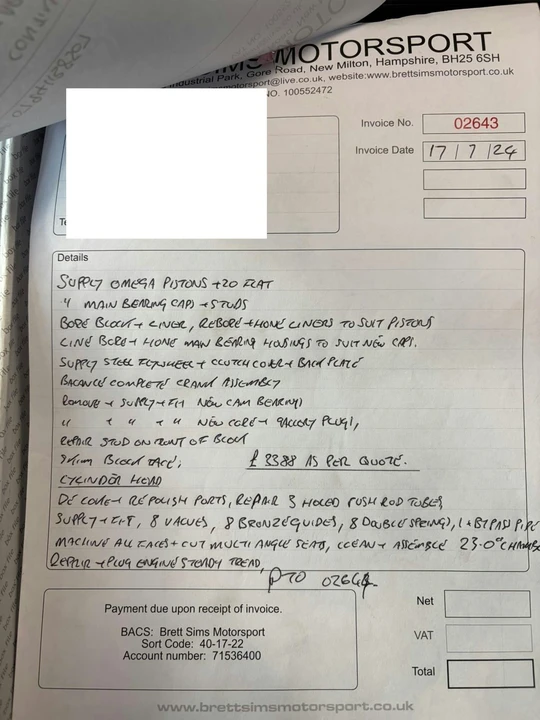 SIMS MOTORSPORT
Industrial Park, Gore Road, New Milton, Hampshire, BH25 6SH
motorsport@live.co.uk, website:www.brettsimsmotorsport.co.uk
NO. 100552472
Invoice No. 02643
Invoice Date 17 / 7 / 24
Te
Details
SUPPLY OMEGA PISTONS +20 FLAT
4 MAIN BEARING CAPS + STUDS
BORE BLOCK + LINER, REBORE + HONE LINERS TO SUIT PISTONS
LINE BORE + HONE MAIN BEARING HOUSINGS TO SUIT NEW CAPS.
SUPPLY STEEL FLYWHEEL + CLUTCH COVER + BACK PLATE
BALANCE COMPLETE CRANK ASSEMBLY
REMOVE + SUPPLY + FIT NEW CAM BEARINGS
" + " + " NEW CORE + GALLERY PLUGS,
REPAIR STUD ON FRONT OF BLOCK
SKIM BLOCK FACE; £3388 AS PER QUOTE.
CYLINDER HEAD
DE COKE + REPOLISH PORTS, REPAIR 3 HOLED PUSH ROD TUBES,
SUPPLY + FIT, 8 VALVES, 8 BRONZE GUIDES, 8 DOUBLE SPRINGS, 1 + BYPASS PIPE
MACHINE ALL FACES + CUT MULTI ANGLE SEATS, CLEAN + ASSEMBLE 23.0cc CHAMBE
REPAIR + PLUG ENGINE STEADY TREAD,
PTO 02644
Payment due upon receipt of invoice.
BACS: Brett Sims Motorsport
Sort Code: 40-17-22
Account number: 71536400
Net
VAT
Total
www.brettsimsmotorsport.co.uk